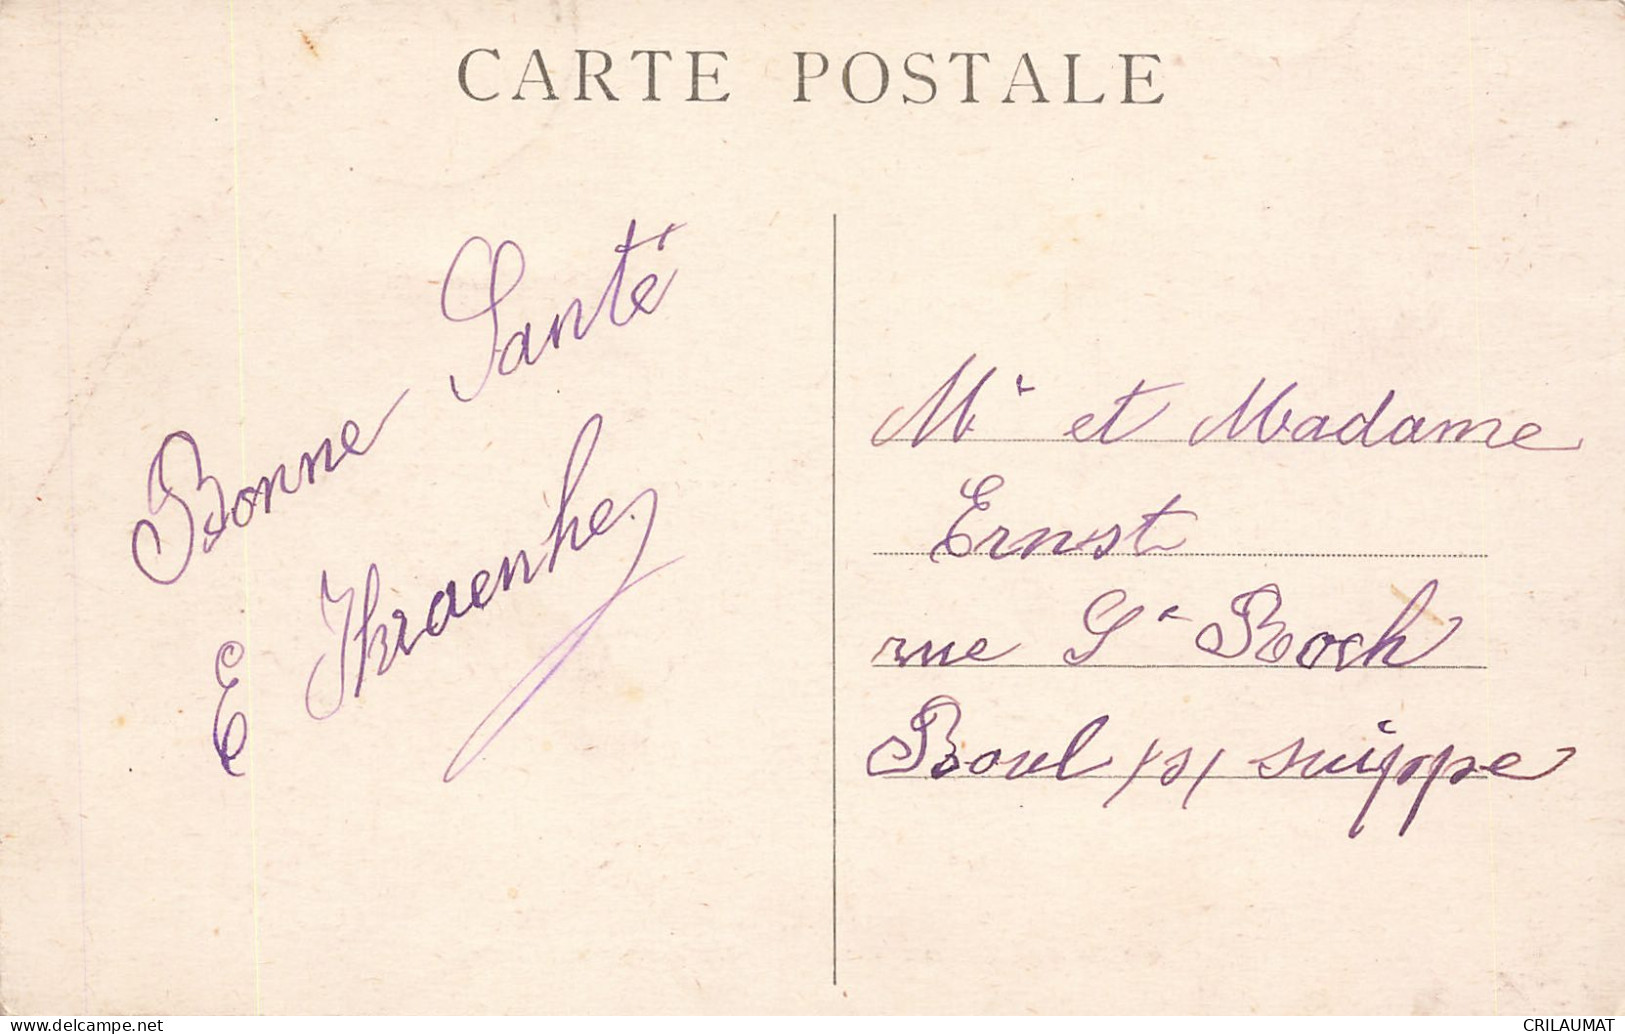 CARTE POSTALE
Bonne Santé
E
Mr et Madame
Ernst
rue St Roch
Boul /s/ suippe
© delcampe.net
CRILAUMAT